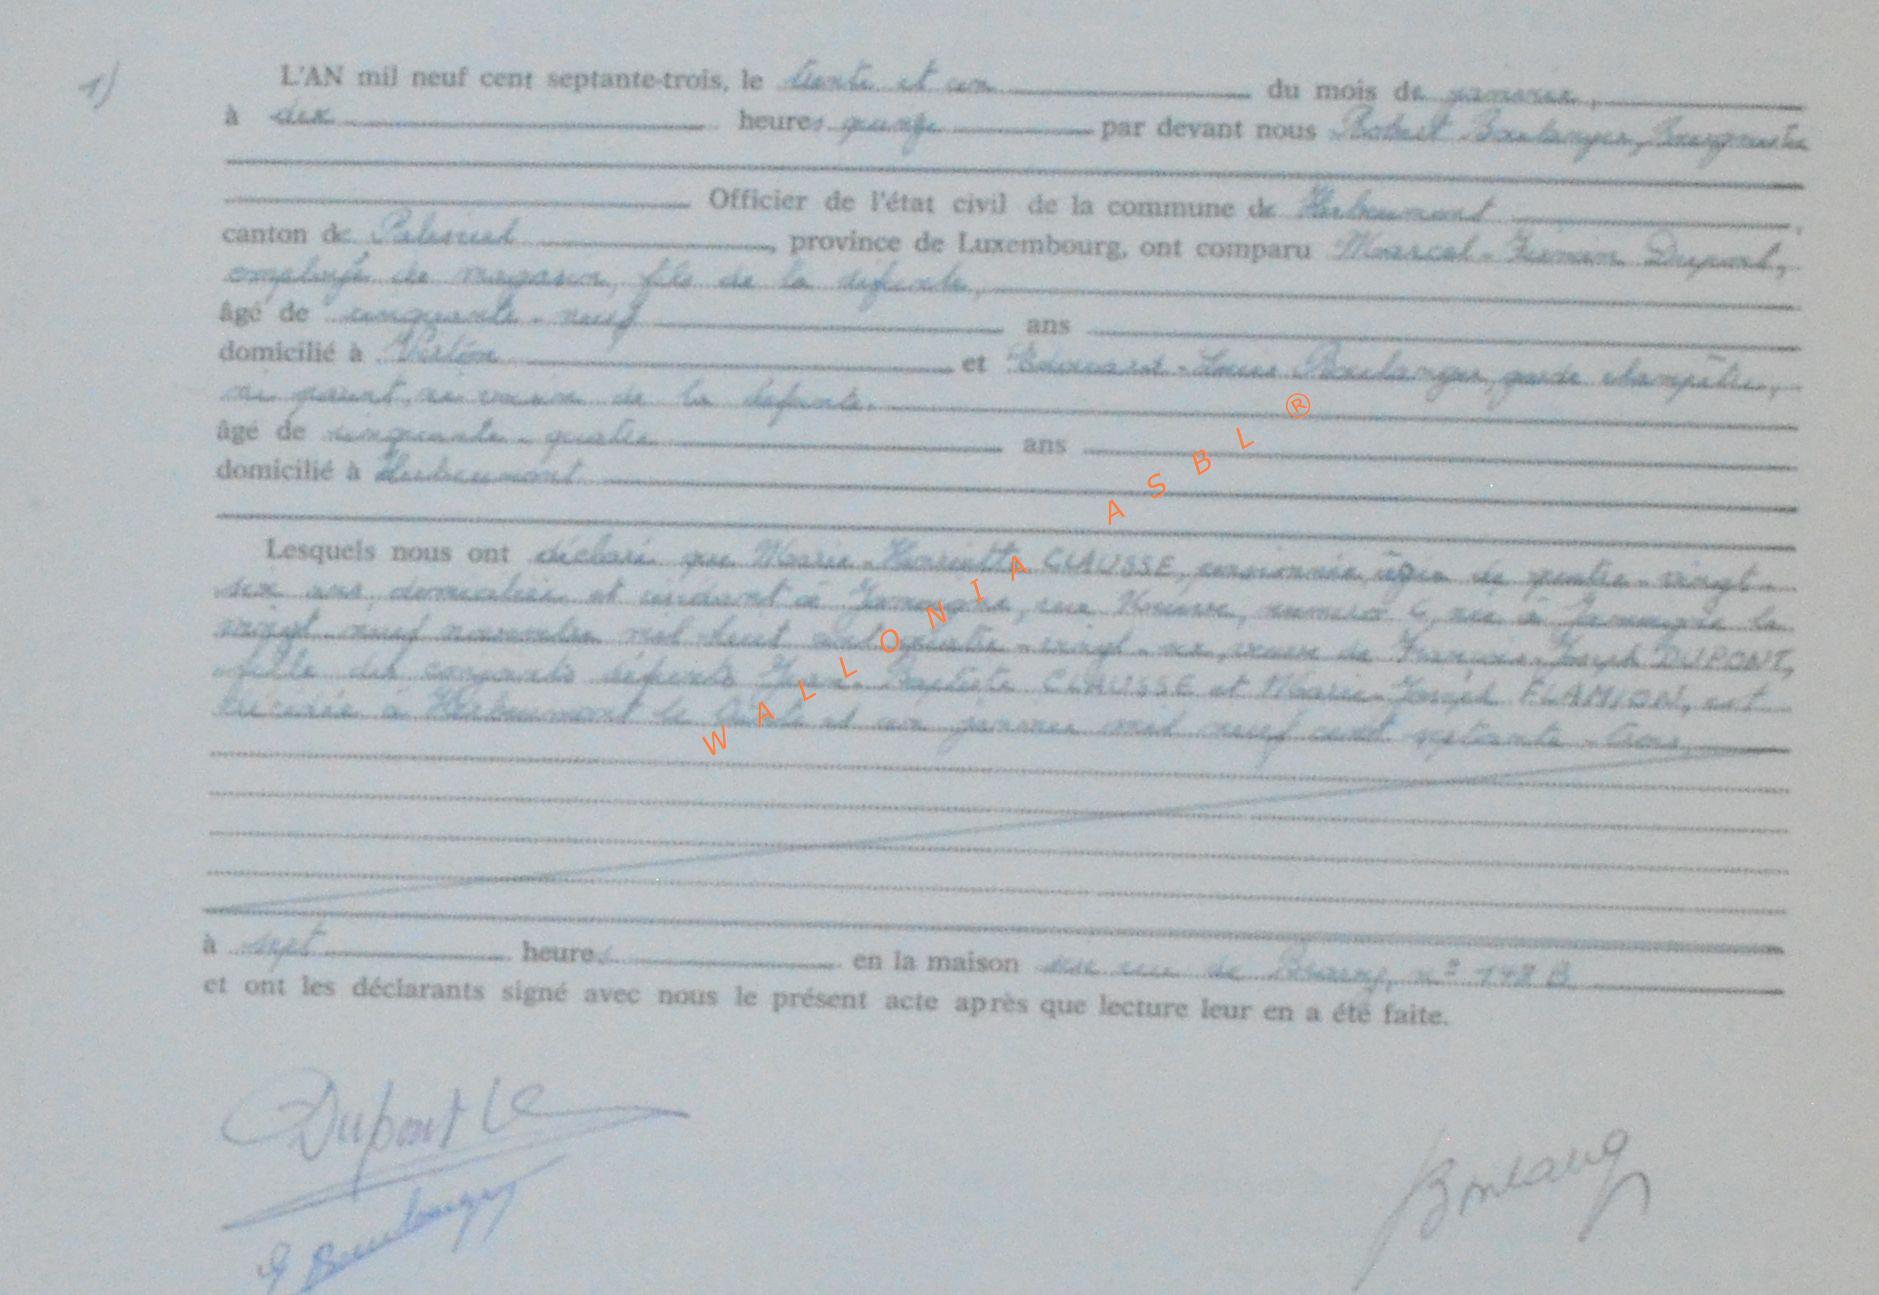 1)
L'AN mil neuf cent septante-trois, le trente et un du mois de janvier,
à dix heures quinze par devant nous Robert Boulanger, Bourgmestre
Officier de l'état civil de la commune de Herbeumont
canton de Paliseul, province de Luxembourg, ont comparu Marcel-Firmin Dupont,
employé de magasin, fils de la défunte,
âgé de cinquante-neuf ans
domicilié à Virton et Edouard-Louis Boulanger, garde champêtre,
ni parent, ni voisin de la défunte.
âgé de cinquante-quatre ans
domicilié à Herbeumont
Lesquels nous ont déclaré que Marie-Henriette CLAUSSE, pensionnée, âgée de quatre-vingt-
six ans, domiciliée et résidant à Jamoigne, rue numéro 6, née à Jamoigne le
vingt-neuf novembre mil huit cent quatre-vingt-six, veuve de François-Joseph DUPONT,
fille des conjoints défunts Jean-Baptiste CLAUSSE et Marie-Joseph FLAMION, est
décédée à Herbeumont le trente et un janvier mil neuf cent septante-trois,
à sept heures en la maison sise rue de n° 178 B
et ont les déclarants signé avec nous le présent acte après que lecture leur en a été faite.
Dupont
Boulanger
Boulang
WALLONIA ASBL ®